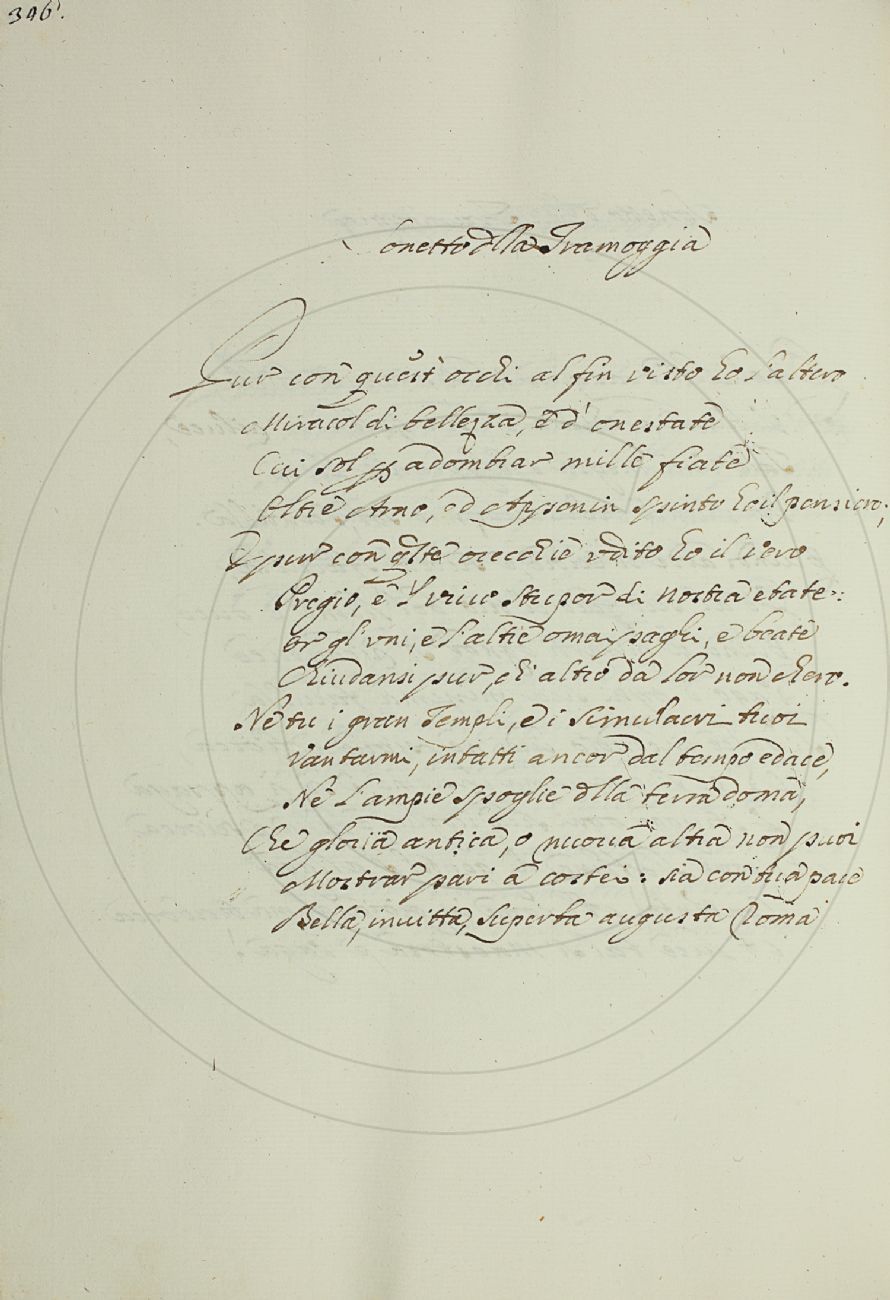 346.
Sonetto dlla Tramoggia
Pur con quest' occhi al fin visto ho l'altero
Miracol di bellezza, e d' onestate
Cui sol p adombrar mille fiate
Oltre Arno, ed Appenin spinto ho il pensiero;
E pur con qste orecchie udito ho il vero
Pregio, e 'l vivo stupor di nostra etate:
or gl' vni, e l'altre omai paghi, e beate
Chiudansi pur, ch' altro da lor non chero.
Nè tu i gran Templi, e i simulacri tuoi
Vantarmi, intatti ancor dal tempo edace,
Nè l'ampie spoglie dlla terra doma,
Chè gloria antica, o nuova altra non puoi
Mostrar pari a costei: sia con tua pace
Bella, invitta, superba augusta Roma